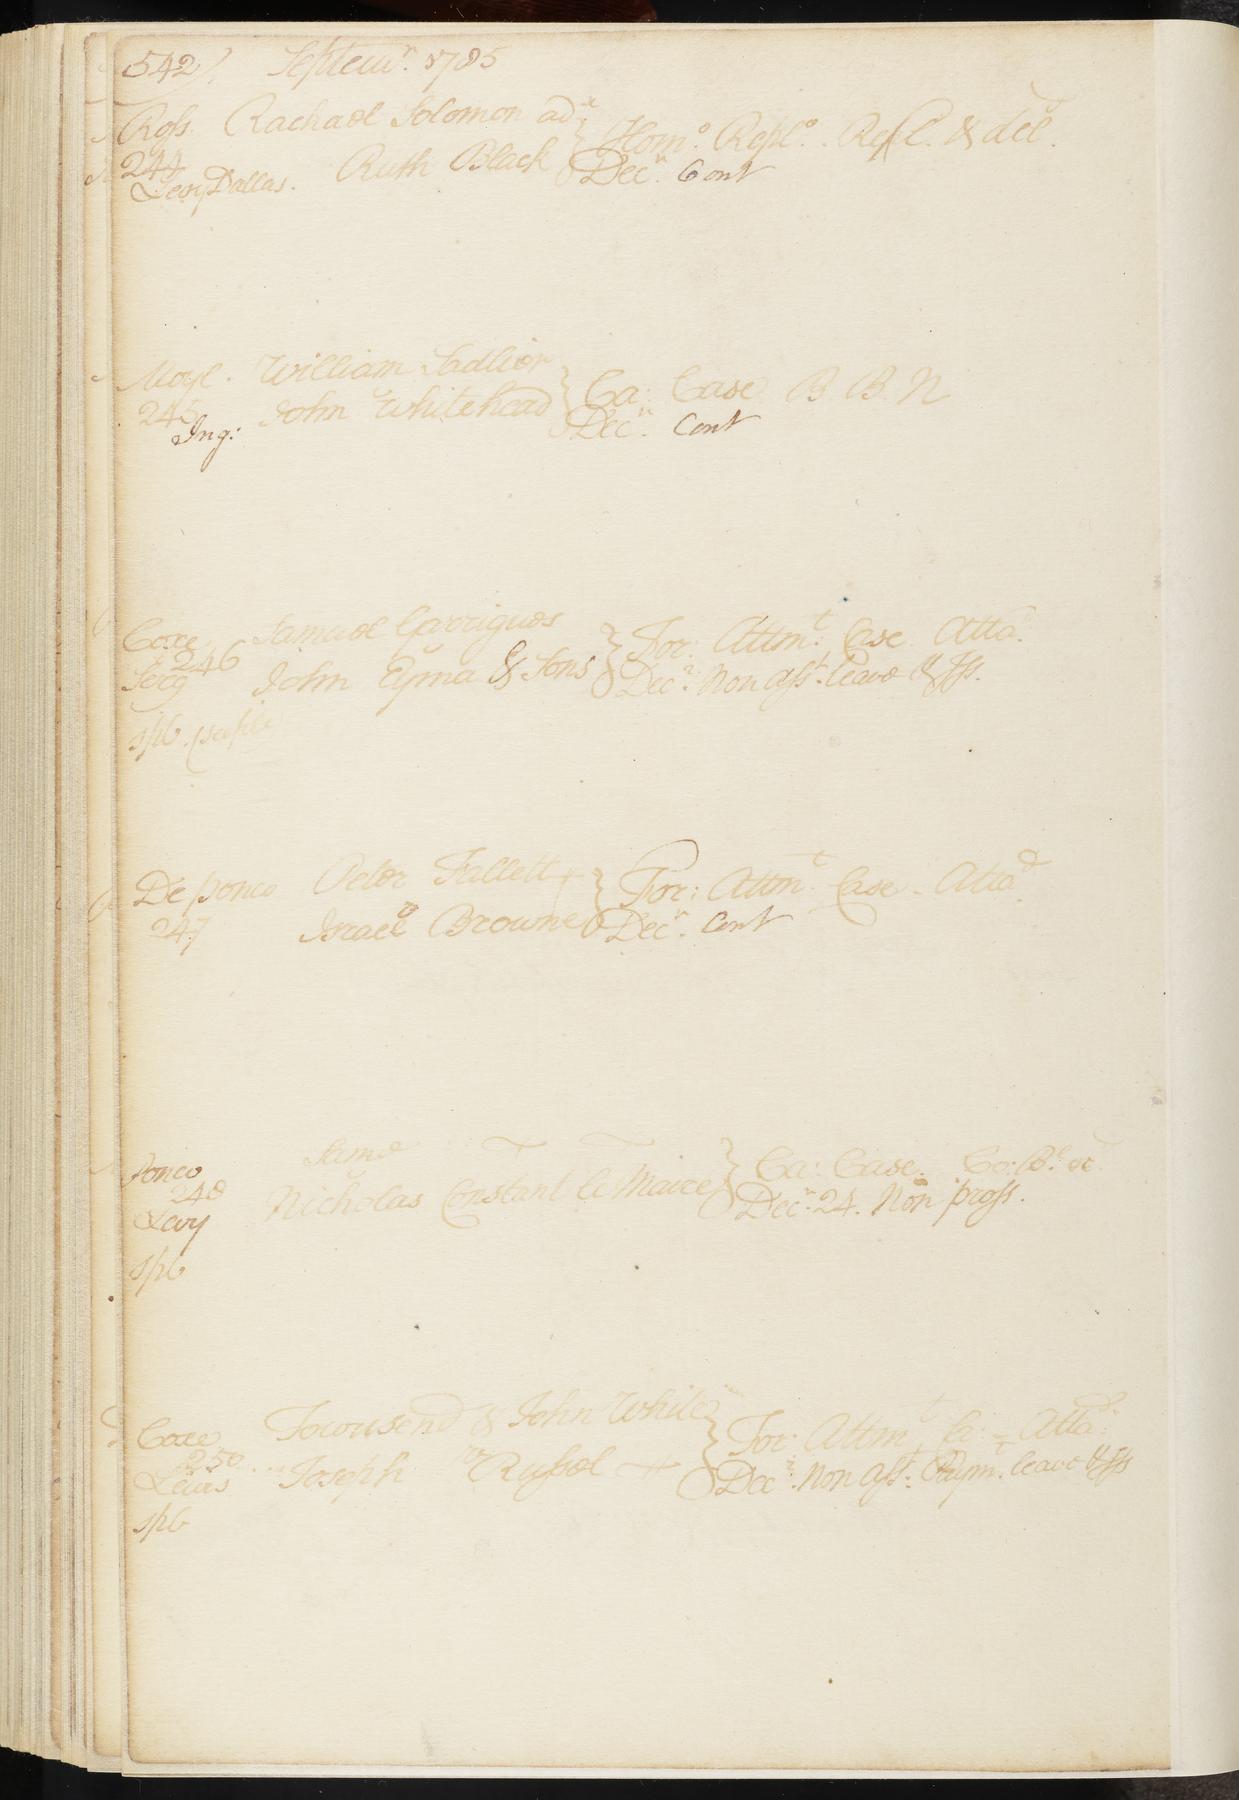 542) Septem.r 1785
Ross. Rachael Solomon ad.x } Hom.o Repl.o. Repl. & del.d
244 Ruth Black Dec.r Cont
Levy Dallas.
Moyl. William Sadlier } Ca: Case B B N
245 John Whitehead Dec.r Cont
Ing:
Coxe Samuel Garrigues } For: Attm.t Case Atta.d
246 John Eyma & Sons Dec.r Non Ass.t leave & Iss.
Serg
spb
De ponco Peter Fallett } For: Attm.t Case - Atta.d
247 Israel Browne Dec.r Cont
ponco Same } Ca: Case. Co: B.
248 Nicholas Constant le Maire Dec.r 24. Non pross.
Levy
spb
Coxe Townsend & John White } For Attm.t Ca: - Atta.d
250 Joseph Russel Dec.r Non Ass.t Paym.t leave & Iss
Lewis
spb